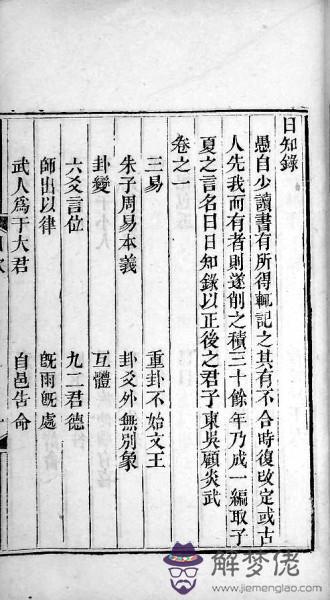 日知錄
愚自少讀書有所得輒記之其有不合時復改定或古
人先我而有者則遂削之積三十餘年乃成一編取子
夏之言名曰日知錄以正後之君子東吳顧炎武
卷之一
三易 重卦不始文王
朱子周易本義 卦爻外無別象
卦變 互體
六爻言位 九二君德
師出以律 旣雨旣處
武人爲于大君 自邑告命
解梦佬
www.jiemenglao.com